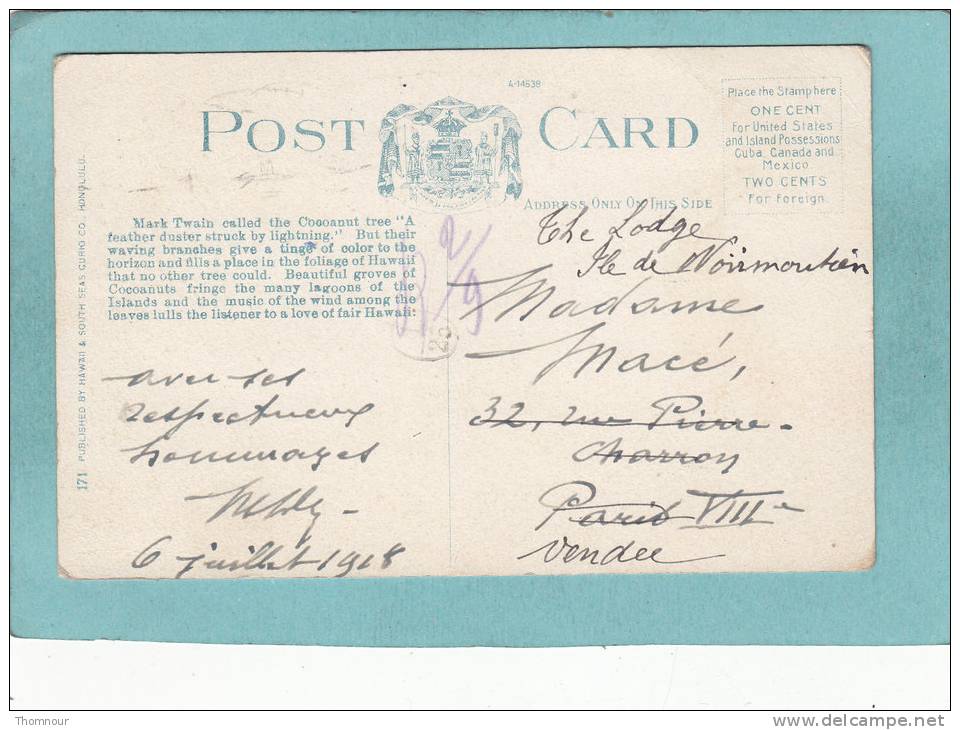 A-14638
POST CARD
Place the Stamp here
ONE CENT
For United States
and Island Possessions
Cuba, Canada and
Mexico
TWO CENTS
For Foreign.
ADDRESS ONLY ON THIS SIDE
Mark Twain called the Cocoanut tree "A
feather duster struck by lightning." But their
waving branches give a tinge of color to the
horizon and fills a place in the foliage of Hawaii
that no other tree could. Beautiful groves of
Cocoanuts fringe the many lagoons of the
Islands and the music of the wind among the
leaves lulls the listener to a love of fair Hawaii:
171 PUBLISHED BY HAWAII & SOUTH SEAS CURIO CO., HONOLULU.
avec ses
respectueux
hommages
6 juillet 1918
2/9
25
The Lodge
Ile de Noirmoutier
Madame
Macé,
32, rue Pierre-
Charron
Paris VIIIe
Vendee
Thomnour
www.delcampe.net